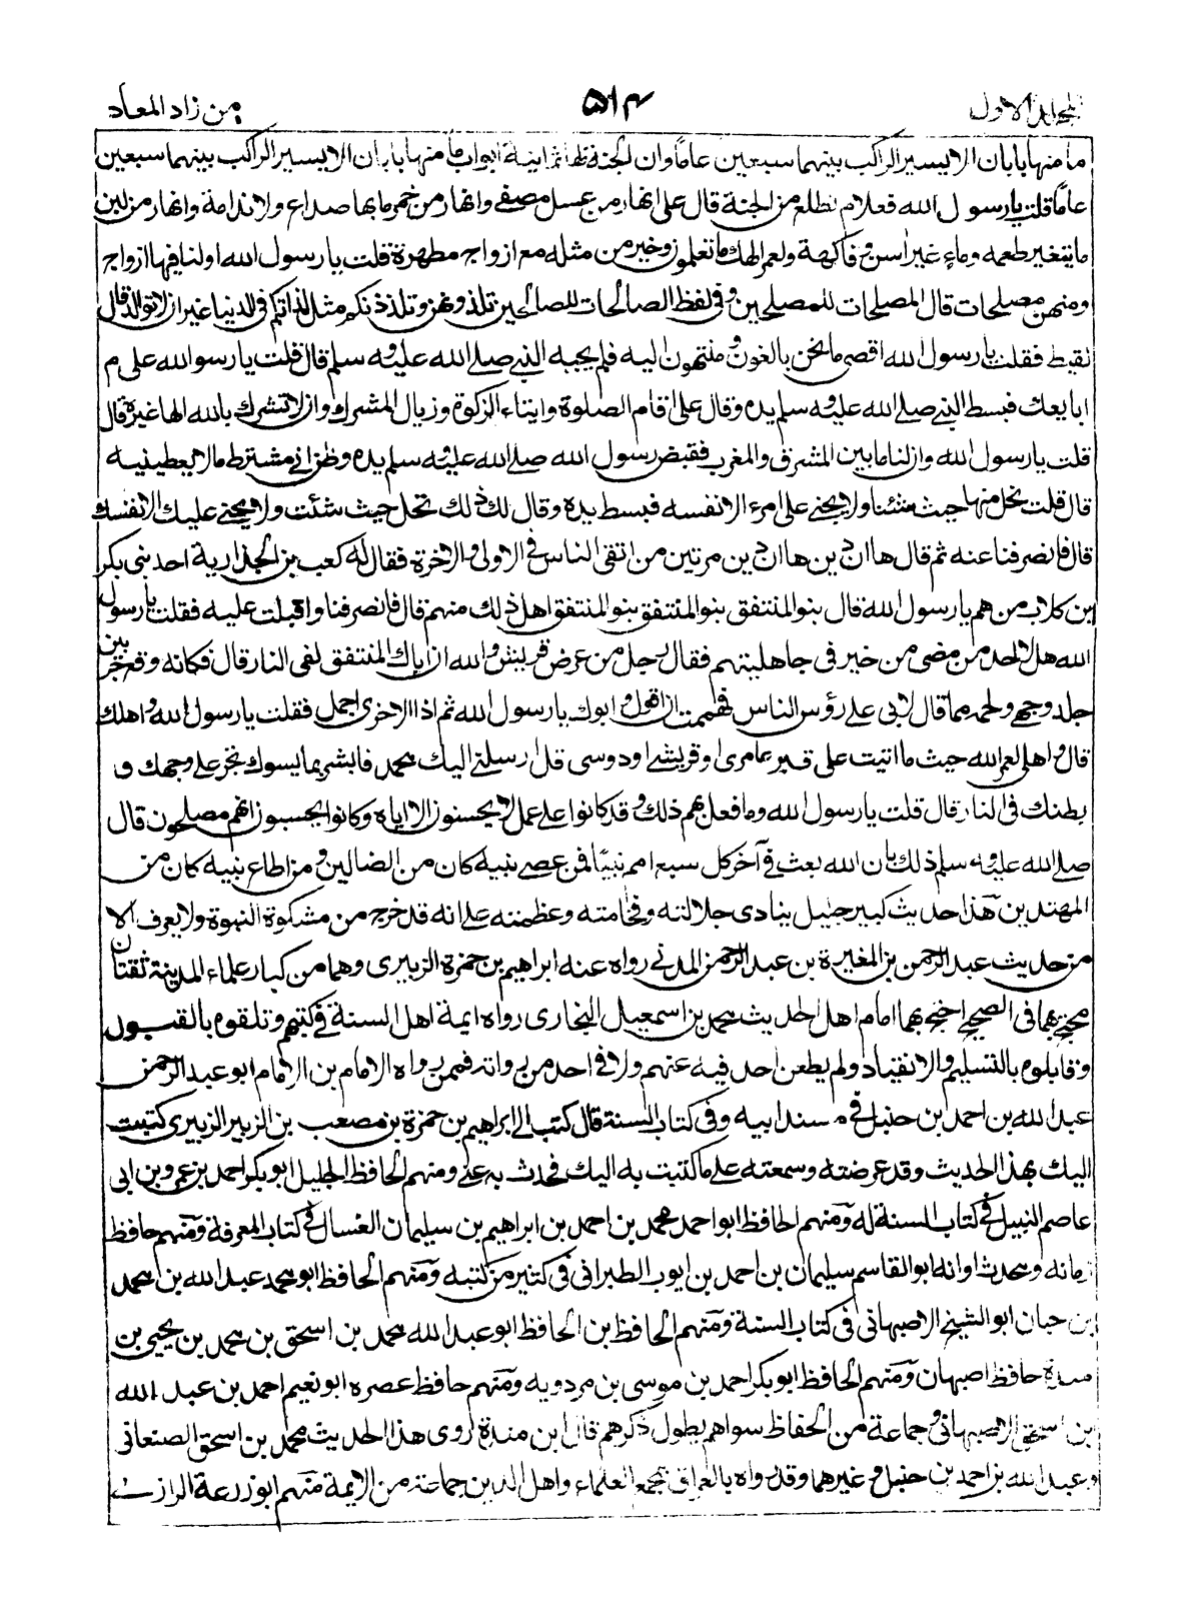 المجلد الاول
۵۱۴
من زاد المعاد
ما منها بابان الا يسير الراكب بينهما سبعين عاما وان للجنة لثمانية ابواب ما منها بابان الا يسير الراكب بينهما سبعين
عاما قلت يا رسول الله فعلام نطلع من الجنة قال على انهار من عسل مصفى وانهار من خمر ما بها صداع ولا ندامة وانهار من لبن
ما يتغير طعمه وماء غير اسن وفاكهة ولعمر الهك ما تعلمون وخير من مثله مع ازواج مطهرة قلت يا رسول الله او لنا فيها ازواج
ومنهن مصلحات قال المصلحات للمصلحين وفى لفظ الصالحات للصالحين تلذونهن وتلذذنكم مثل لذاتكم فى الدنيا غير ان لا توالد قال
لقيط فقلت يا رسول الله اقصى ما نحن بالغون ومنتهون اليه فلم يجبه النبى صلى الله عليه وسلم قال قلت يا رسو الله على م
ابايعك فبسط النبى صلى الله عليه وسلم يده وقال على اقام الصلوة وايتاء الزكوة وزيال المشرك وان لا تشرك بالله الها غيره قال
قلت يا رسول الله وان لنا ما بين المشرق والمغرب فقبض رسول الله صلى الله عليه وسلم يده وظن انى مشترط ما لا يعطينيه
قال قلت نحل منها حيث شئنا ولا يجنى على امرء الا نفسه فبسط يده وقال لك ذلك تحل حيث شئت ولا يجنى عليك الا نفسك
قال فانصرفنا عنه ثم قال ها ان ذين ها ان ذين مرتين من اتقى الناس فى الاولى والاخرة فقال له كعب بن الجدارية احد بنى بكر
بن كلاب من هم يا رسول الله قال بنو المنتفق بنو المنتفق بنو المنتفق اهل ذلك منهم قال فانصرفنا واقبلت عليه فقلت يا رسول
الله هل لاحد من مضى من خير فى جاهليتهم فقال رجل من عرض قريش والله ان اباك المنتفق لفى النار قال فكانه وقع حر بين
جلد وجهى ولحمه مما قال لابى على رؤس الناس فهممت ان اقول وابوك يا رسول الله ثم اذا الاخرى اجمل فقلت يا رسول الله واهلك
قال واهلى لعمر الله حيث ما اتيت على قبر عامرى او قريشى او دوسى قل ارسلنى اليك محمد فابشر بما يسوك تجر على وجهك و
بطنك فى النار قال قلت يا رسول الله وما فعل بهم ذلك وقد كانوا على عمل لا يحسنون الا اياه وكانوا يحسبون انهم مصلحون قال
صلى الله عليه وسلم ذلك بان الله بعث فى آخر كل سبع امم نبيا فمن عصى نبيه كان من الضالين ومن اطاع نبيه كان من
المهتدين هذا حديث كبير جليل ينادى جلالته وفخامته وعظمته على انه قد خرج من مشكوة النبوة ولا يعرف الا
من حديث عبد الرحمن بن المغيرة بن عبد الرحمن المدنى رواه عنه ابراهيم بن حمزة الزبيرى وهما من كبار علماء المدينة ثقتان
محتج بهما فى الصحيح احتج بهما امام اهل الحديث محمد بن اسمعيل البخارى رواه ايمة اهل السنة فى كتبهم وتلقوه بالقبول
وقابلوه بالتسليم والانقياد ولم يطعن احد فيه عنهم ولا فى احد من رواته فممن رواه الامام بن الامام ابو عبد الرحمن
عبد الله بن احمد بن حنبل فى مسند ابيه وفى كتاب السنة قال كتب الى ابراهيم بن حمزة بن مصعب بن الزبير الزبيرى كتبت
اليك بهذا الحديث وقد عرضته وسمعته على ما كتبت به اليك فحدث به عنى ومنهم الحافظ الجليل ابو بكر احمد بن عمرو بن ابى
عاصم النبيل فى كتاب السنة له ومنهم الحافظ ابو احمد محمد بن احمد بن ابراهيم بن سليمان العسال فى كتاب المعرفة ومنهم حافظ
زمانه ومحدث اوانه ابو القاسم سليمان بن احمد بن ايوب الطبرانى فى كثير من كتبه ومنهم الحافظ ابو محمد عبد الله بن محمد
بن حيان ابو الشيخ الاصبهانى فى كتاب السنة ومنهم الحافظ بن الحافظ ابو عبد الله محمد بن اسحق بن محمد بن يحيى بن
مندة حافظ اصبهان ومنهم الحافظ ابو بكر احمد بن موسى بن مردويه ومنهم حافظ عصره ابو نعيم احمد بن عبد الله
بن اسحق الاصبهانى وجماعة من الحفاظ سواهم يطول ذكرهم قال ابن مندة روى هذا الحديث محمد بن اسحق الصنعانى
وعبد الله بن احمد بن حنبل وغيرهما وقد رواه بالعراق بمجمع العلماء واهل الدين جماعة من الايمة منهم ابو زرعة الرازى